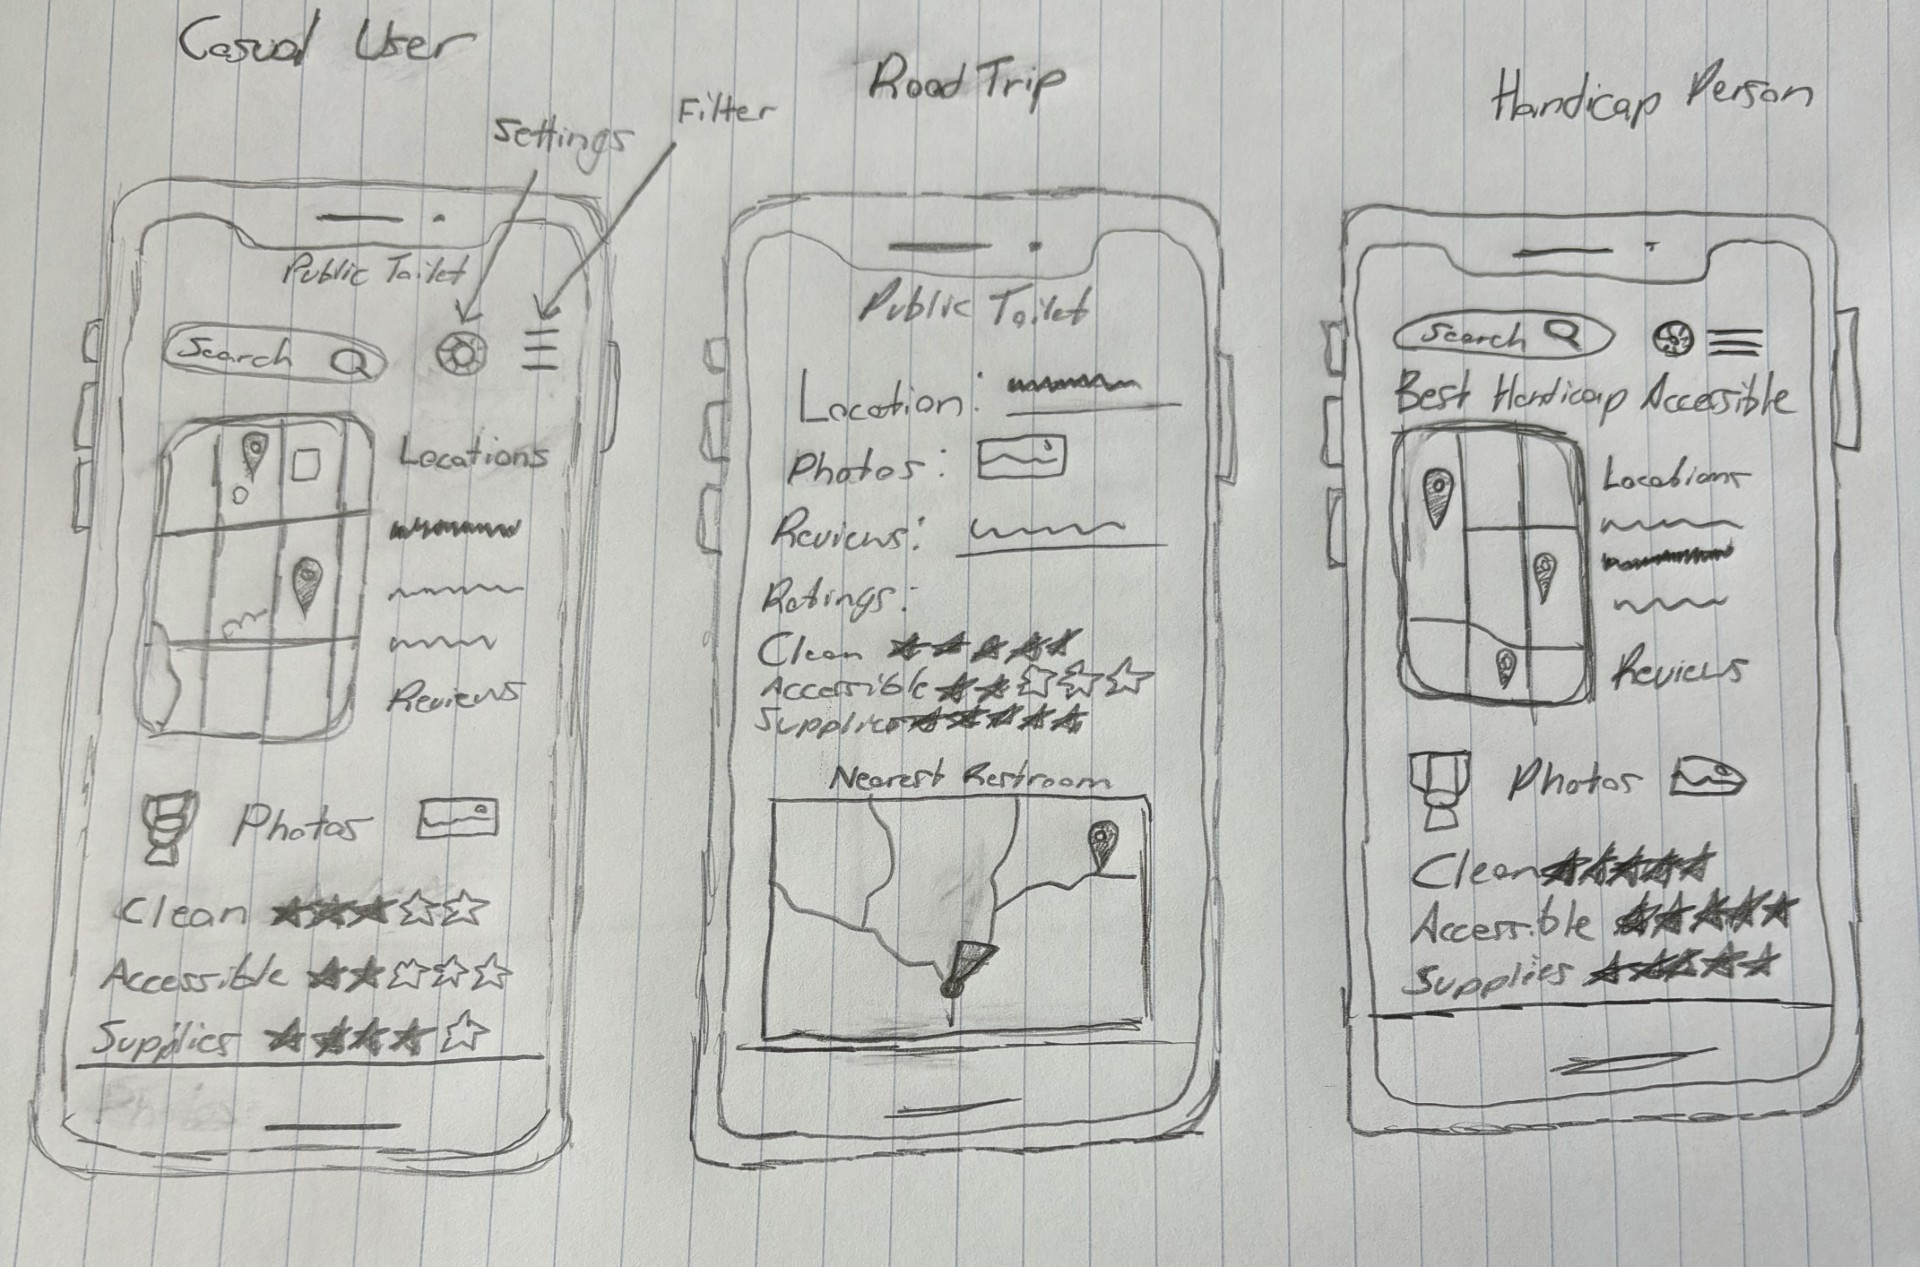 Casual User
Settings
Filter
Public Toilet
Search
Locations
Reviews
Photos
Clean
Accessible
Supplies
Road Trip
Public Toilet
Location:
Photos:
Reviews:
Ratings:
Clean
Accessible
Supplies
Nearest Restroom
Handicap Person
Search
Best Handicap Accessible
Locations
Reviews
Photos
Clean
Accessible
Supplies